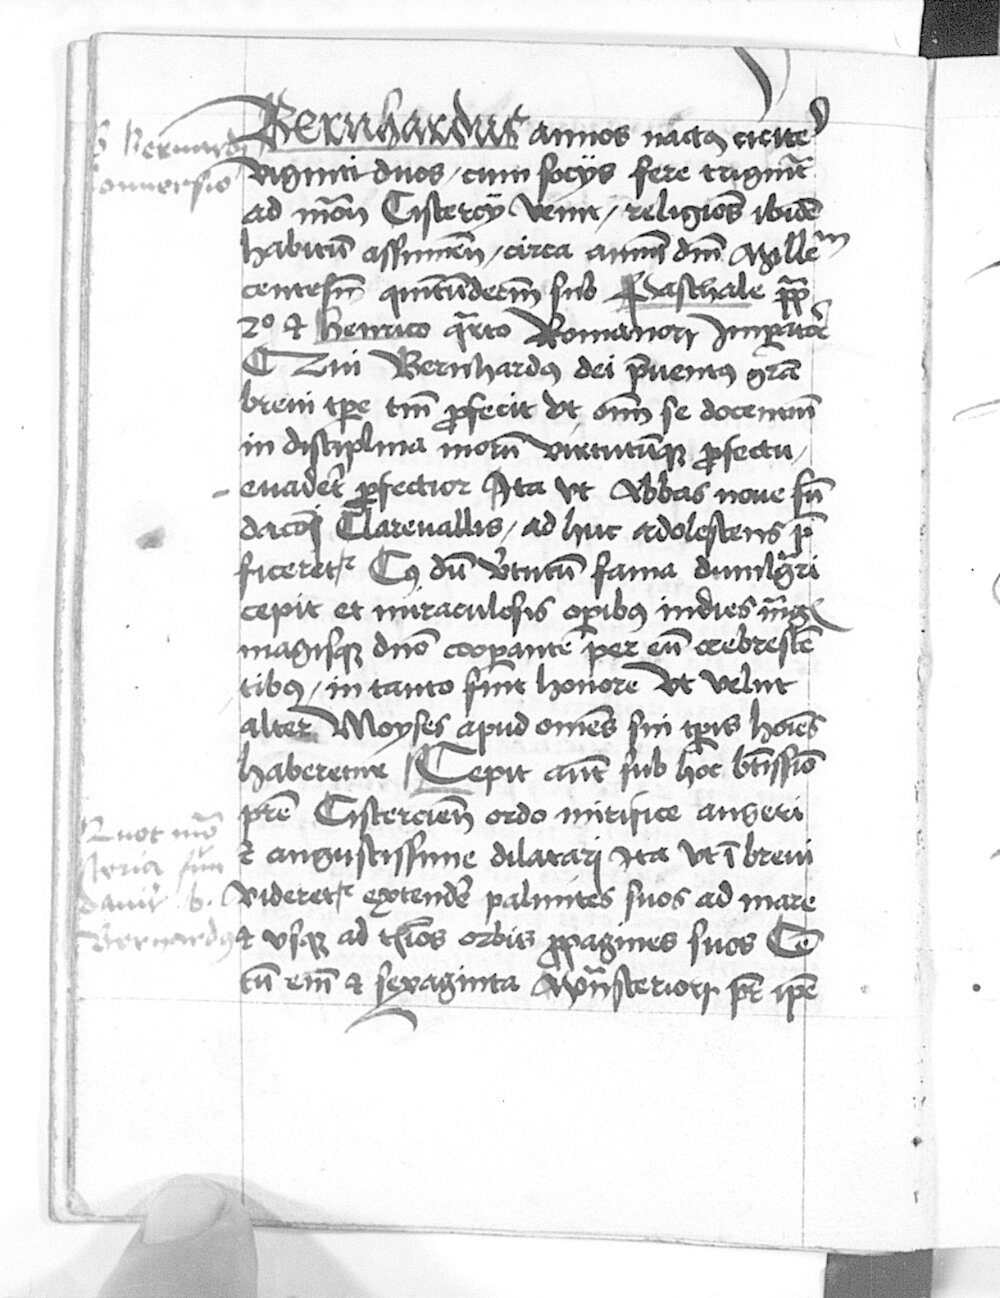 S Bernardi
Conversio
Bernhardus annos natus circiter
viginti duos / cum socijs fere trigint̄
ad mōn Cistercij venit / religiōs ibidē
habitū assumen̄ / circa annū dn̄i Mille
centesī quītūdecīm sub Paschale pp̄
2º et henrico q̄rto Romanorū Impator̄
Qui Bernhardus dei p̄ventus gr̄a
brevi tp̄e tm̄ profecit vt om̄ se docentiū
in disciplina morū virtutūq̄ profectu /
evader̄ perfectior Ita vt Abbas nove fū
dac̄ois Clarevallis / ad huc adolescens p̄
ficeretr Cuius dū v̄tutū fama divulgari
cepit et miraculosis operibus indies mag
magisq̄ dn̄o cooperante per eū crebrescē
tibus / in tanto fuit honore vt velut
alter Moyses apud omnes sui tp̄is hoīes
haberetur Cepit aut̄ sub hoc bt̄issīo
pr̄e Cistercien̄ ordo mirifice augeri
et angustissime dilatari Ita vt ī brevi
videretr extender̄ palmites suos ad mare
et vsq̄ ad tm̄os orbis propagines suos Cē
tū em̄ et sexaginta Monasteriorū pr̄ ip̄e
Quot mō
steria fun
davit b.
Bernardus